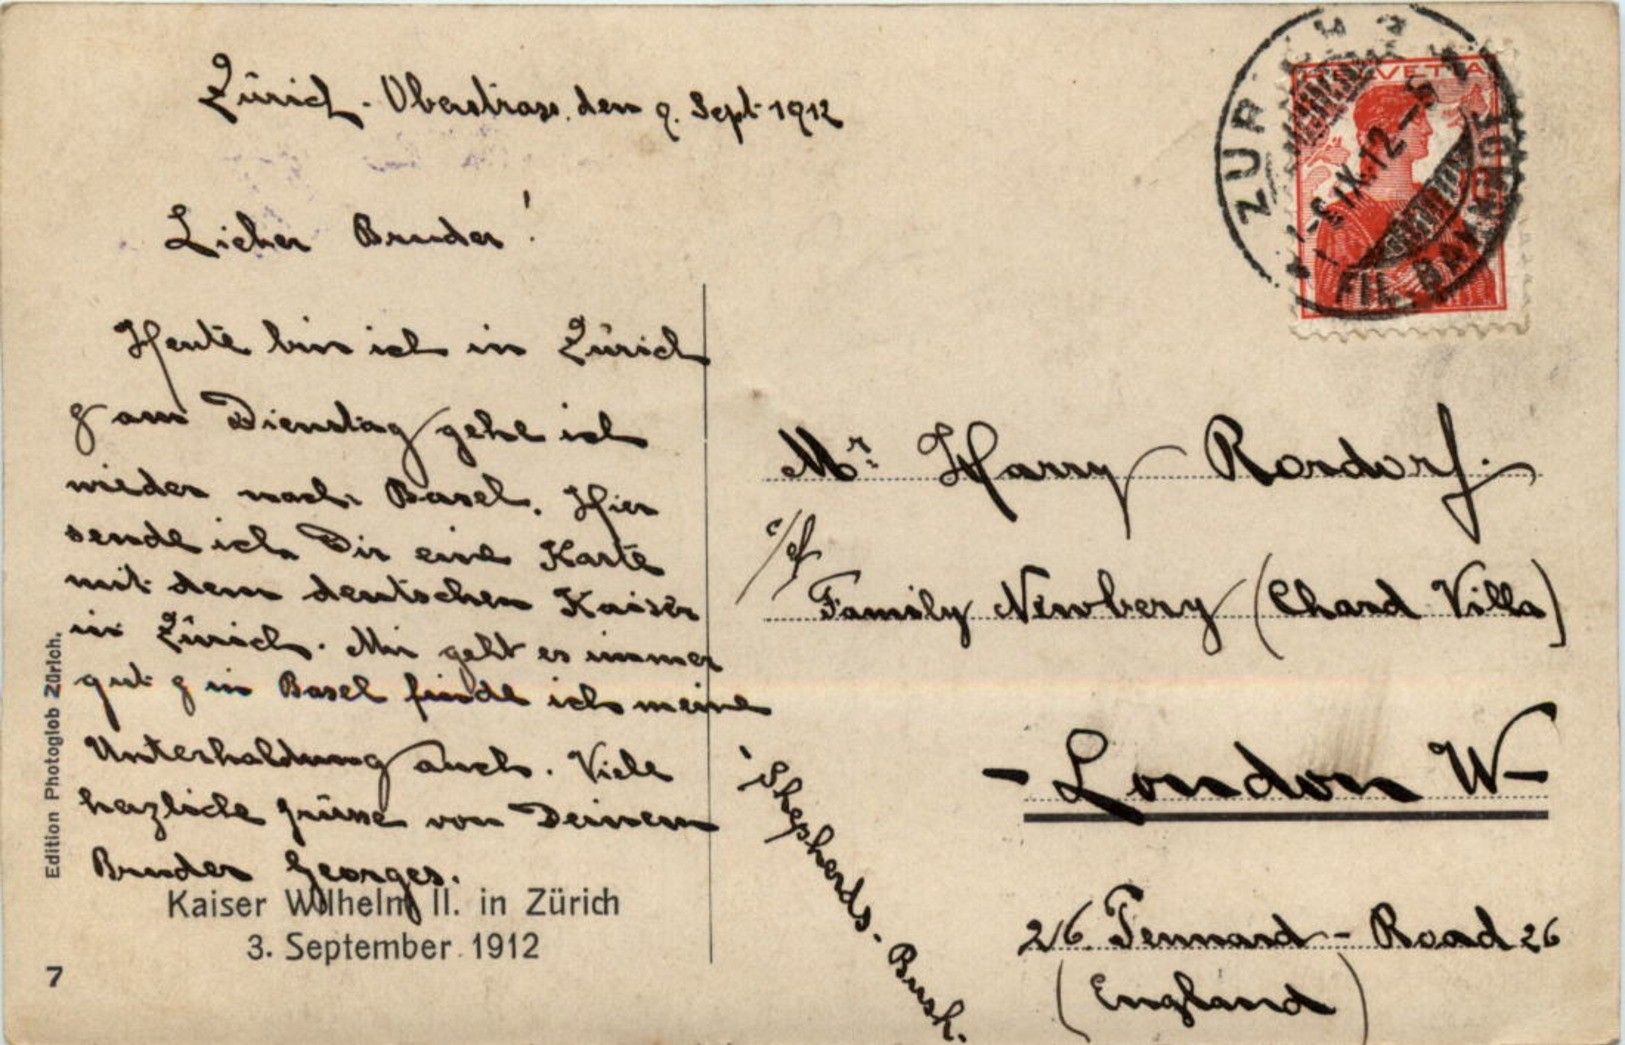 Zürich - Oberstrass, den 9. Sept. 1912
Lieber Bruder!
Heute bin ich in Zürich
& am Dienstag gehe ich
wieder nach Basel. Hier
sende ich Dir eine Karte
mit dem deutschen Kaiser
in Zürich. Mir geht es immer
gut & in Basel finde ich meine
Unterhaldung auch. Viele
herzliche Grüsse von Deinem
Bruder Georges.
Kaiser Wilhelm II. in Zürich
3. September 1912
7
Edition Photoglob Zürich.
HELVETIA
-9.IX.12.-5
FIL. BAHNHOF
Mr. Harry Rordorf.
c/of
Family Newbery (Chard Villa)
- London W -
Shepherds-Bush.
26. Tennard - Road 26
(England)